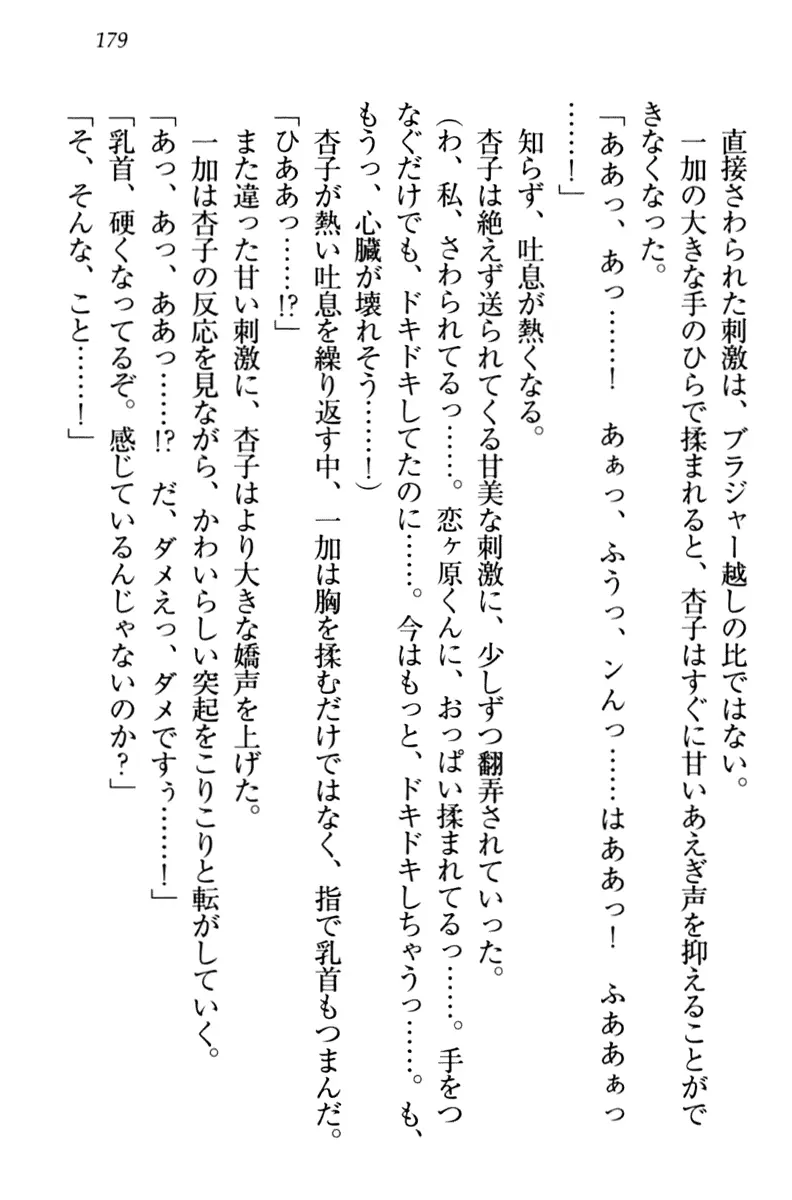 179
直接さわられた刺激は、ブラジャー越しの比ではない。
一加の大きな手のひらで揉まれると、杏子はすぐに甘いあえぎ声を抑えることがで
きなくなった。
「ああっ、あっ……！　あぁっ、ふうっ、ンんっ……はああっ！　ふああぁっ
……！」
知らず、吐息が熱くなる。
杏子は絶えず送られてくる甘美な刺激に、少しずつ翻弄されていった。
（わ、私、さわられてるっ……。恋ヶ原くんに、おっぱい揉まれてるっ……。手をつ
なぐだけでも、ドキドキしてたのに……。今はもっと、ドキドキしちゃうっ……。も、
もうっ、心臓が壊れそう……！）
杏子が熱い吐息を繰り返す中、一加は胸を揉むだけではなく、指で乳首もつまんだ。
「ひああっ……!?」
また違った甘い刺激に、杏子はより大きな嬌声を上げた。
一加は杏子の反応を見ながら、かわいらしい突起をこりこりと転がしていく。
「あっ、あっ、ああっ……!?　だ、ダメえっ、ダメですぅ……！」
「乳首、硬くなってるぞ。感じているんじゃないのか？」
「そ、そんな、こと……！」